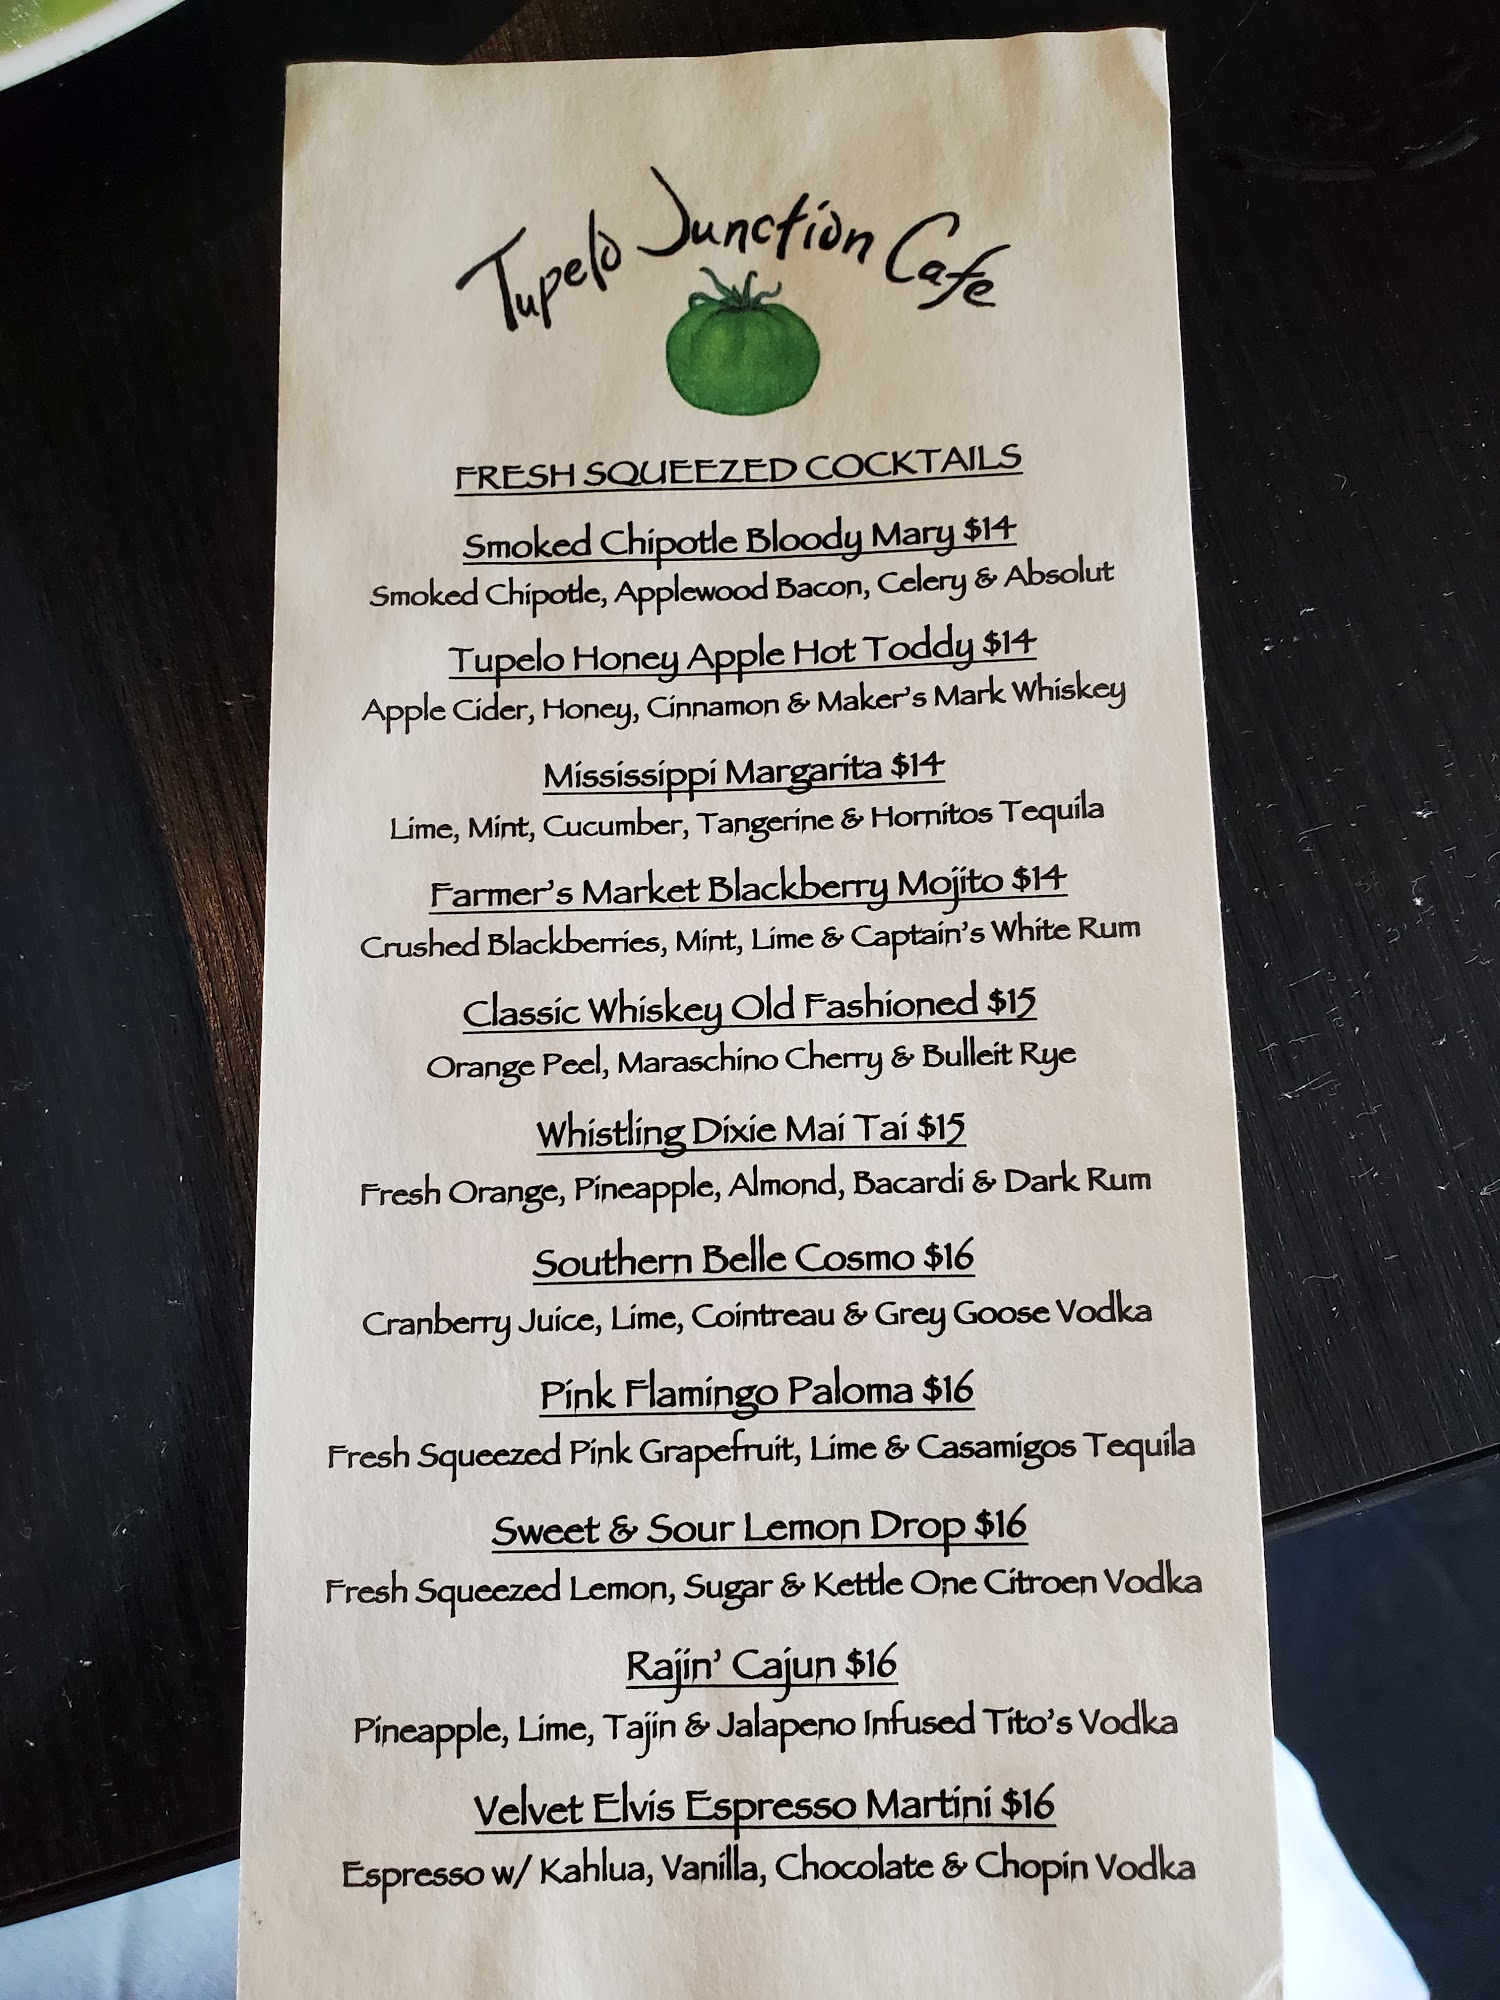 Tupelo Junction Cafe
FRESH SQUEEZED COCKTAILS
Smoked Chipotle Bloody Mary $14
Smoked Chipotle, Applewood Bacon, Celery & Absolut
Tupelo Honey Apple Hot Toddy $14
Apple Cider, Honey, Cinnamon & Maker's Mark Whiskey
Mississippi Margarita $14
Lime, Mint, Cucumber, Tangerine & Hornitos Tequila
Farmer's Market Blackberry Mojito $14
Crushed Blackberries, Mint, Lime & Captain's White Rum
Classic Whiskey Old Fashioned $15
Orange Peel, Maraschino Cherry & Bulleit Rye
Whistling Dixie Mai Tai $15
Fresh Orange, Pineapple, Almond, Bacardi & Dark Rum
Southern Belle Cosmo $16
Cranberry Juice, Lime, Cointreau & Grey Goose Vodka
Pink Flamingo Paloma $16
Fresh Squeezed Pink Grapefruit, Lime & Casamigos Tequila
Sweet & Sour Lemon Drop $16
Fresh Squeezed Lemon, Sugar & Kettle One Citroen Vodka
Rajin' Cajun $16
Pineapple, Lime, Tajin & Jalapeno Infused Tito's Vodka
Velvet Elvis Espresso Martini $16
Espresso w/ Kahlua, Vanilla, Chocolate & Chopin Vodka